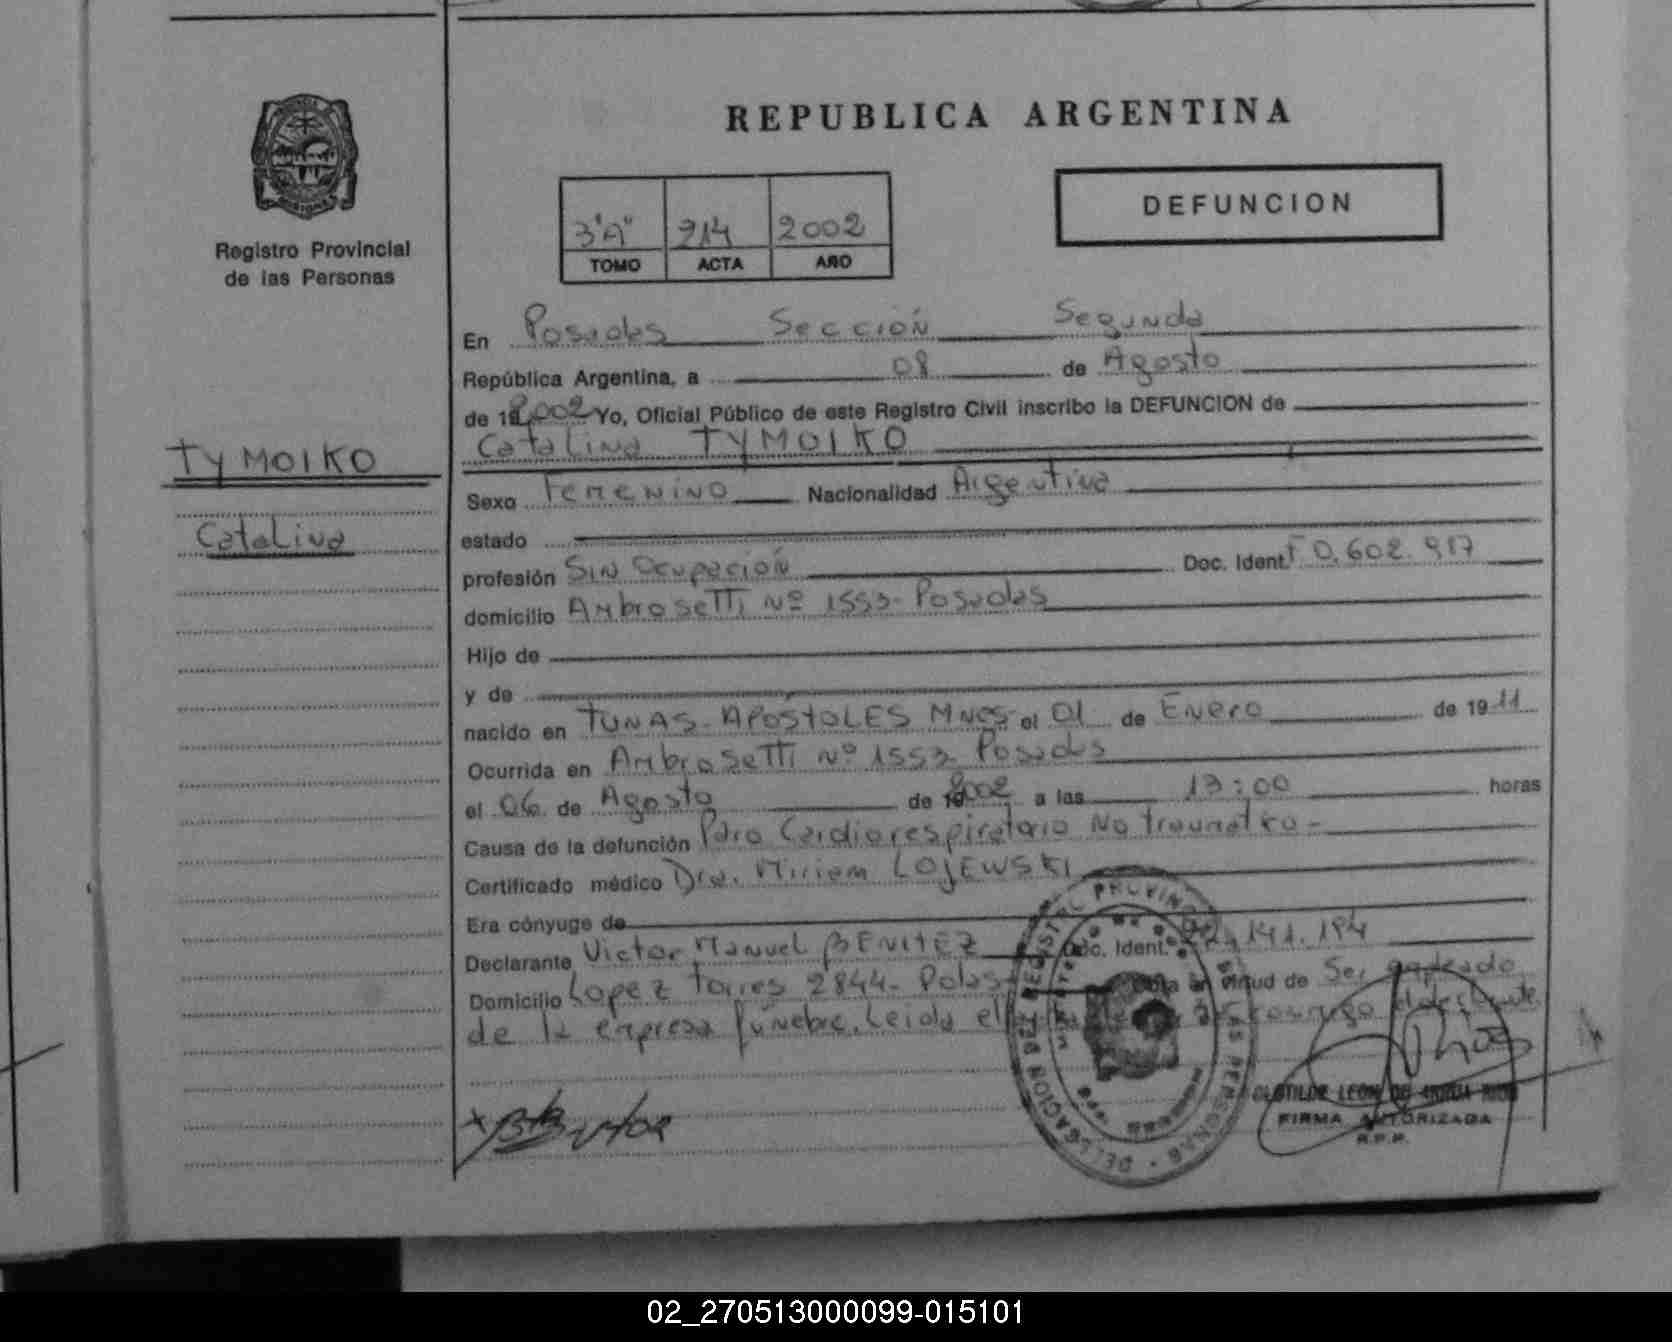 REPUBLICA ARGENTINA
Registro Provincial
de las Personas
3"A" 214 2002
TOMO ACTA AÑO
DEFUNCION
TYMOIKO
Catalina
En Posadas Sección Segunda
República Argentina, a 08 de Agosto
de 19 2002 Yo, Oficial Público de este Registro Civil inscribo la DEFUNCION de
Catalina TYMOIKO
Sexo Femenino Nacionalidad Argentina
estado
profesión Sin Ocupación Doc. Ident. F 0.602.917
domicilio Ambrosetti Nº 1553- Posadas
Hijo de
y de
nacido en TUNAS- APOSTOLES MNES- el 01 de Enero de 1911
Ocurrida en Ambrosetti Nº 1553 Posadas
el 06 de Agosto de 19 2002 a las 13:00 horas
Causa de la defunción Paro Cardiorespiratorio No traumatico-
Certificado médico Dra. Miriam LOJEWSKI
Era cónyuge de
Declarante Victor Manuel BENITEZ Doc. Ident. 141.194
Domicilio Lopez Torres 2844- Pdas- en virtud de Ser empleado
de la empresa fúnebre. Leida el
CLOTILDE LEON DE
FIRMA AUTORIZADA
R.P.P.
02_270513000099-015101